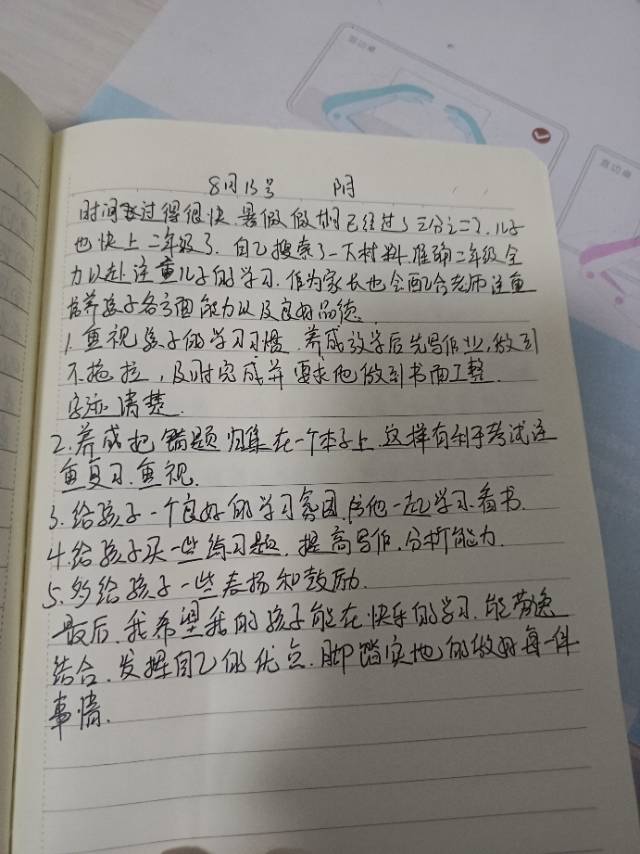 8月15号 阴
时间过得很快.暑假假期已经过了三分之二了.儿子
也快上二年级了.自己搜索了一下材料.准确二年级全
力以赴注重儿子的学习.作为家长也会配合老师注重
培养孩子各方面能力以及良好品德.
1.重视孩子的学习习惯.养成放学后先写作业,做到
不拖拉,及时完成并要求他做到书面工整.
字迹清楚.
2.养成把错题归集在一个本子上.这样有利于考试注
重复习.重视.
3.给孩子一个良好的学习氛围.陪他一起学习.看书.
4.给孩子买一些练习题.提高写作.分析能力.
5.多给孩子一些表扬和鼓励.
最后.我希望我的孩子能在快乐的学习.能劳逸
结合.发挥自己的优点.脚踏实地的做好每一件
事情.